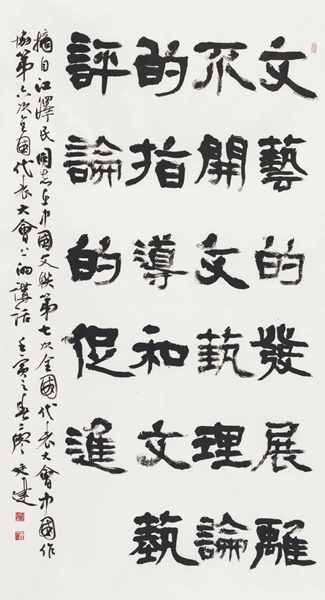 文藝的發展離
不開文藝理論
的指導和文藝
評論的促進
摘自江澤民同志在中國文聯第七次全國代表大會中國作
協第六次全國代表大會上的講話 壬寅之春